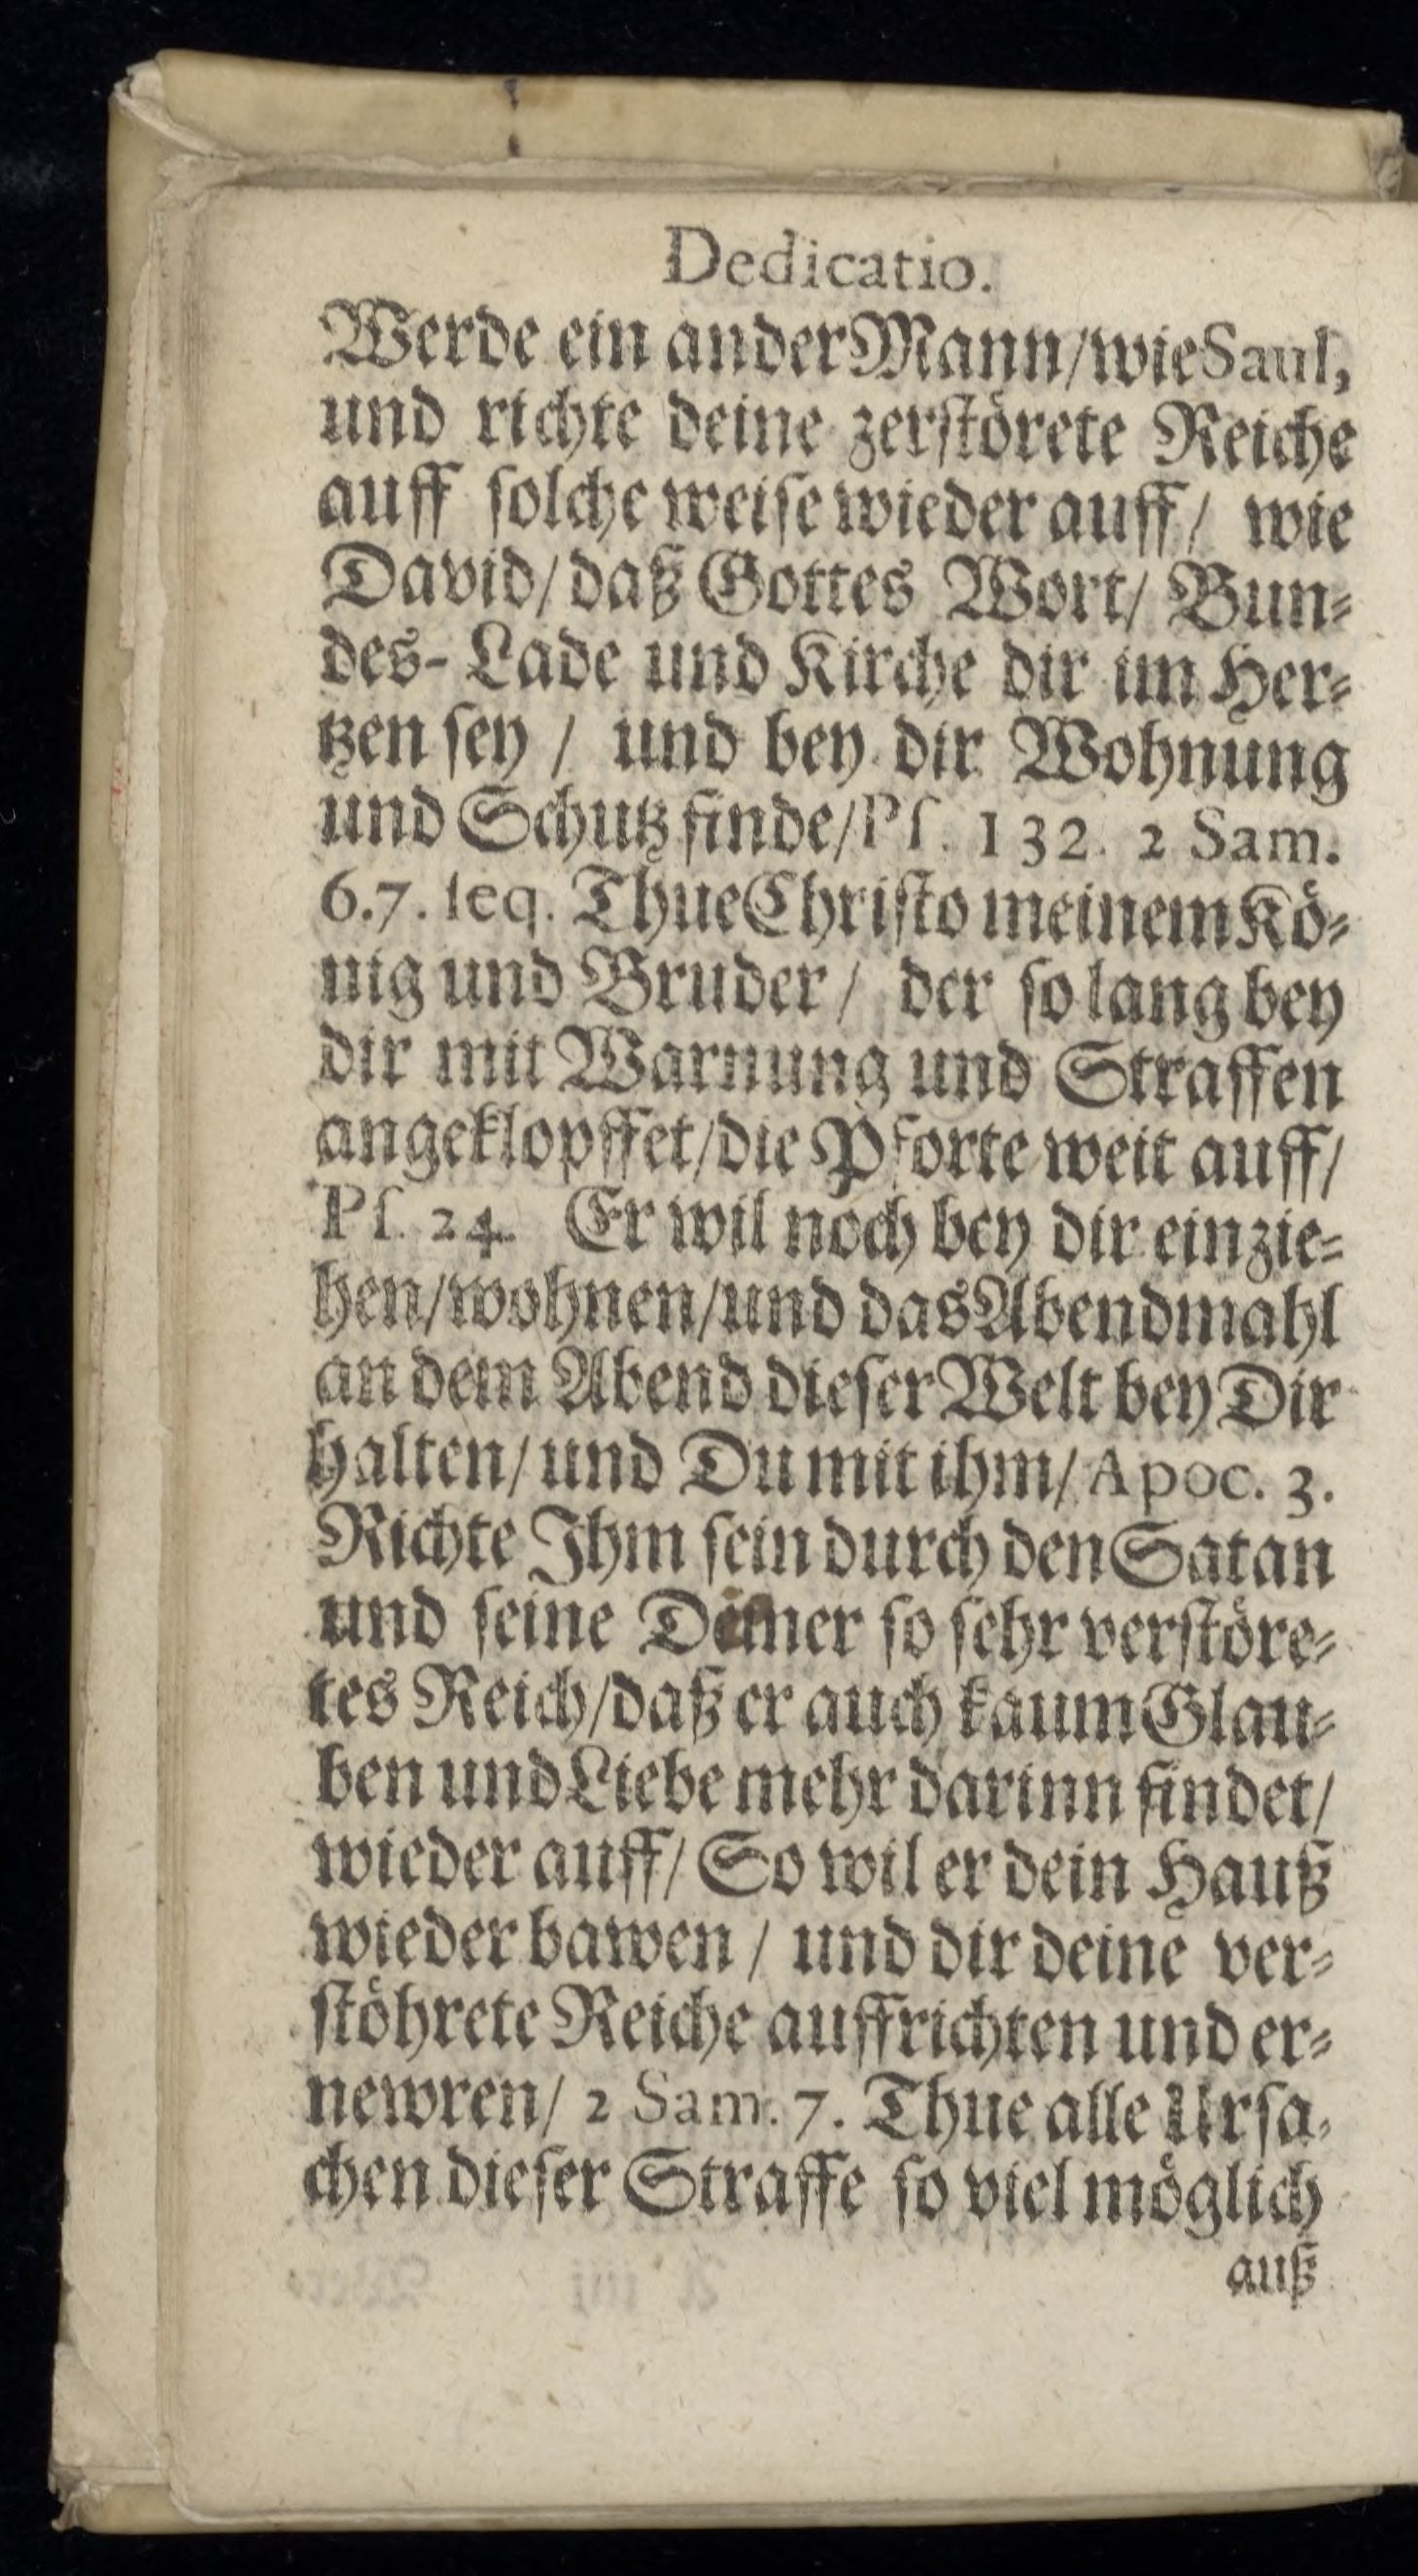 Dedicatio.
Werde ein ander Mann/wie Saul,
und richte deine zerstörete Reiche
auff solche weise wieder auff/ wie
David/daß Gottes Wort/ Bun-
des-Lade und Kirche dir im Her-
tzen sey / und bey dir Wohnung
und Schutz finde/Ps. 132. 2 Sam.
6.7. seq. Thue Christo meinem Kö-
nig und Bruder/ der so lang bey
dir mit Warnung und Straffen
angeklopffet/die Pforte weit auff/
Ps. 24. Er wil noch bey dir einzie-
hen/wohnen/und das Abendmahl
an dem Abend dieser Welt bey Dir
halten/und Du mit ihm/Apoc. 3.
Richte Ihm sein durch den Satan
und seine Diener so sehr verstöre-
tes Reich/daß er auch kaum Glau-
ben und Liebe mehr darinn findet/
wieder auff/ So wil er dein Hauß
wieder bawen / und dir deine ver-
stöhrete Reiche auffrichten und er-
newren/ 2 Sam. 7. Thue alle Ursa-
chen dieser Straffe so viel möglich
auß